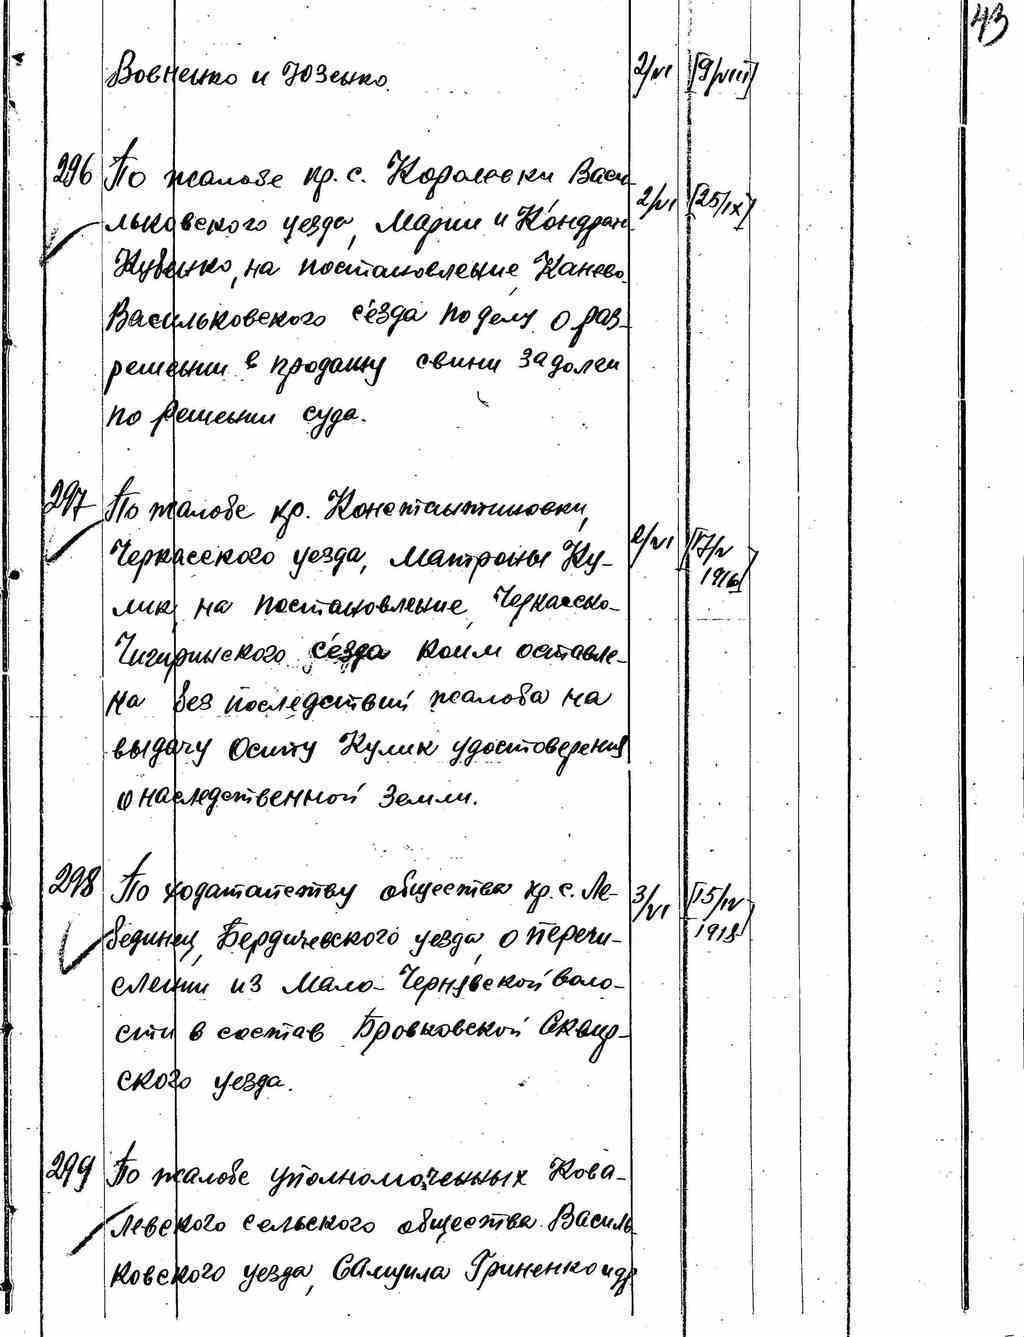 43
Вовненко и Юзенко. 2/VI [9/VIII]
296 По жалобе кр. с. Королевки Васи-
льковского уезда, Марии и Кондрат
Кубенко, на постановление Канево- 2/VI [25/IX]
Васильковского с'езда по делу о раз-
решении в продажу свини за долги
по решении суда.
297 По жалобе кр. Константиновки,
Черкасского уезда, Матроны Ку- 2/VI [17/V
лик, на постановление Черкасско- 1916]
Чигиринского с'езда коим оставле-
на без последствий жалоба на
выдачу Осипу Кулик удостоверения
о наследственной земли.
298 По ходатайству общества кр. с. Ле- 3/VI [15/IV
бединец, Бердичевского уезда, о перечи- 1918]
слении из Мало-Чернявской воло-
сти в состав Бровковской Сквир-
ского уезда.
299 По жалобе уполномоченных Кова-
левского сельского общества Василь-
ковского уезда, Самуила Гриненко и др